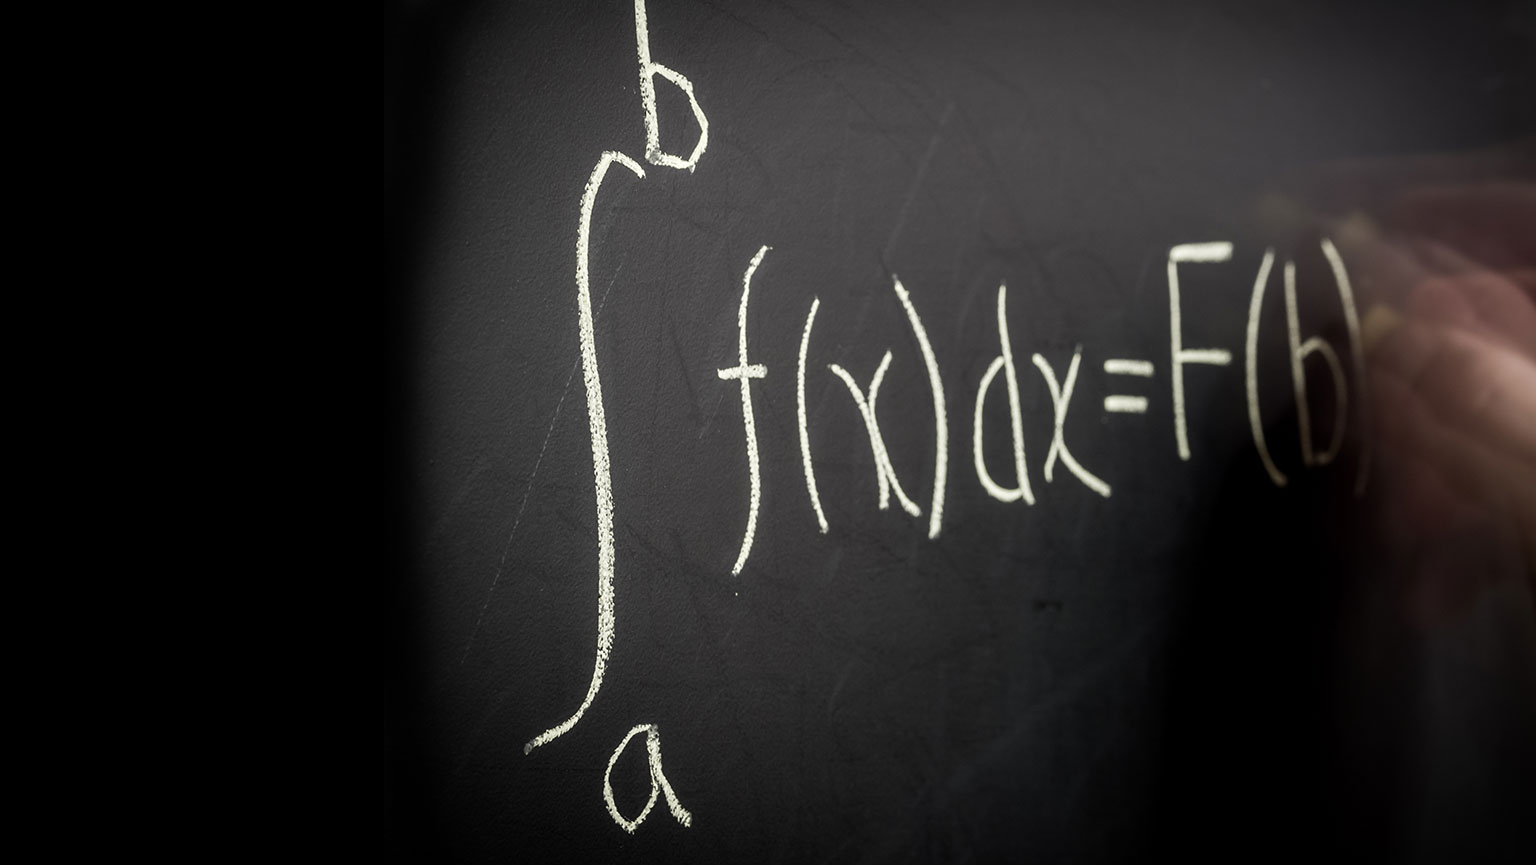 ∫ₐᵇ f(x)dx=F(b)